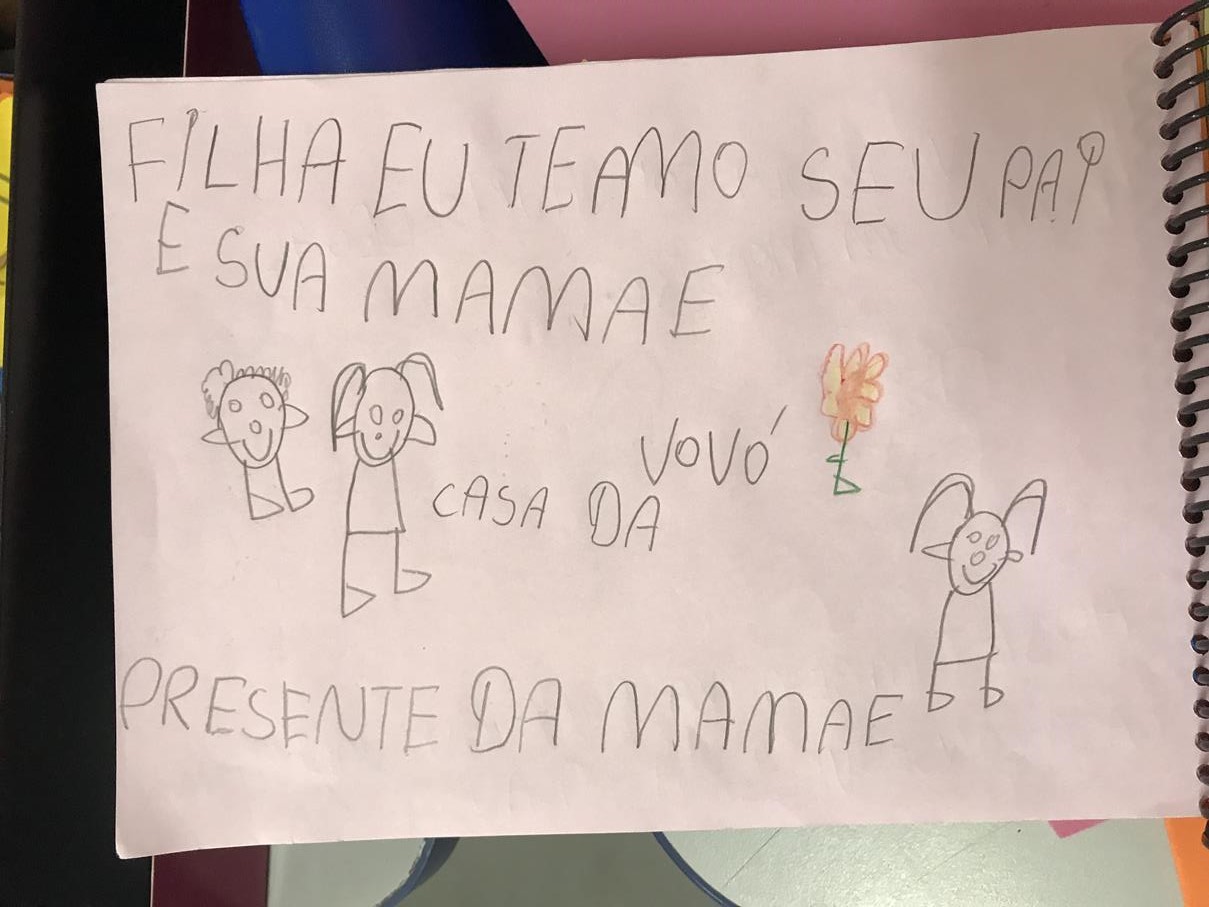 FILHA EU TE AMO SEU PAI
E SUA MAMAE
CASA DA VOVÓ
PRESENTE DA MAMAE